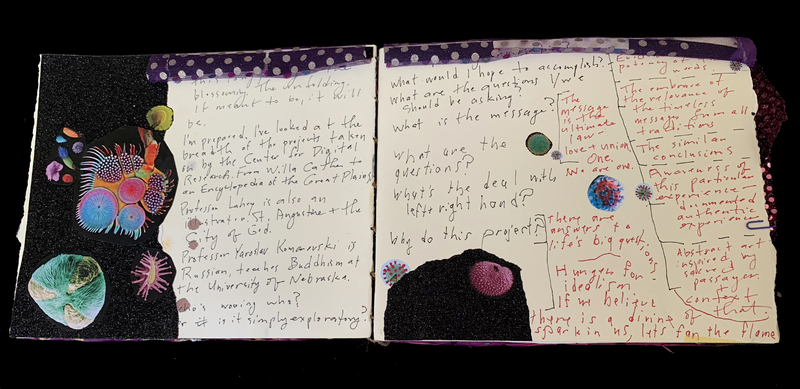 blossoming
the unfolding.
If meant to be, it will
be.
I'm prepared. I've looked at the
breadth of the projects taken
on by the Center for Digital
Research. from Willa Cather to
an Encyclopedia of the Great Plains
Professor Lahey is also an
St. Augustine + the
City of God.
Professor Yaroslav is
Russian, teaches Buddhism at
the University of Nebraska.
who's wooing who?
or is it simply exploratory?
what would I hope to accomplish?
what are the questions I/we
should be asking?
what is the message?
what are the
questions?
what's the deal with
left + right hand?
why do this project?
The
message
is the
ultimate
law
love + union
One.
we are one.
There are
answers to
life's big quest.
Hunger for
idealism
If we believe
there is a divine
spark in us, lets fan the flame
words.
The embrace of
the relevance of
the timeless
message from all
traditions
The similar
conclusions
Awareness of
this particular
experience
authentic
experience
Abstract art
inspired by
sacred
passages
context
of that.